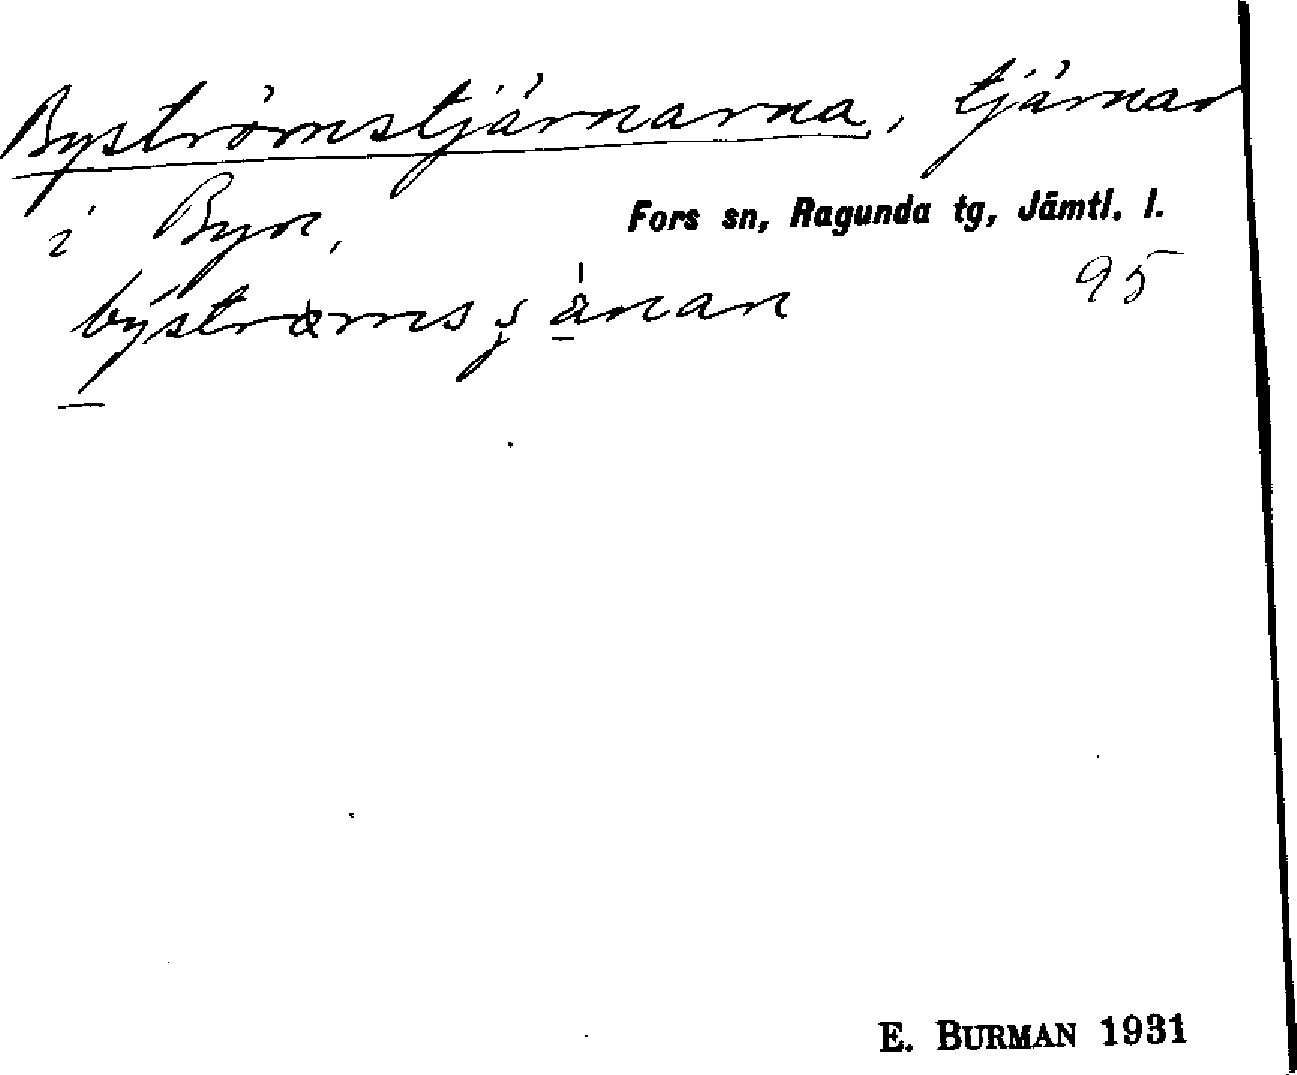 Byströmstjärnarna, tjärnar
i Byn,
Fors sn, Ragunda tg, Jämtl. l.
95
E. BURMAN 1931